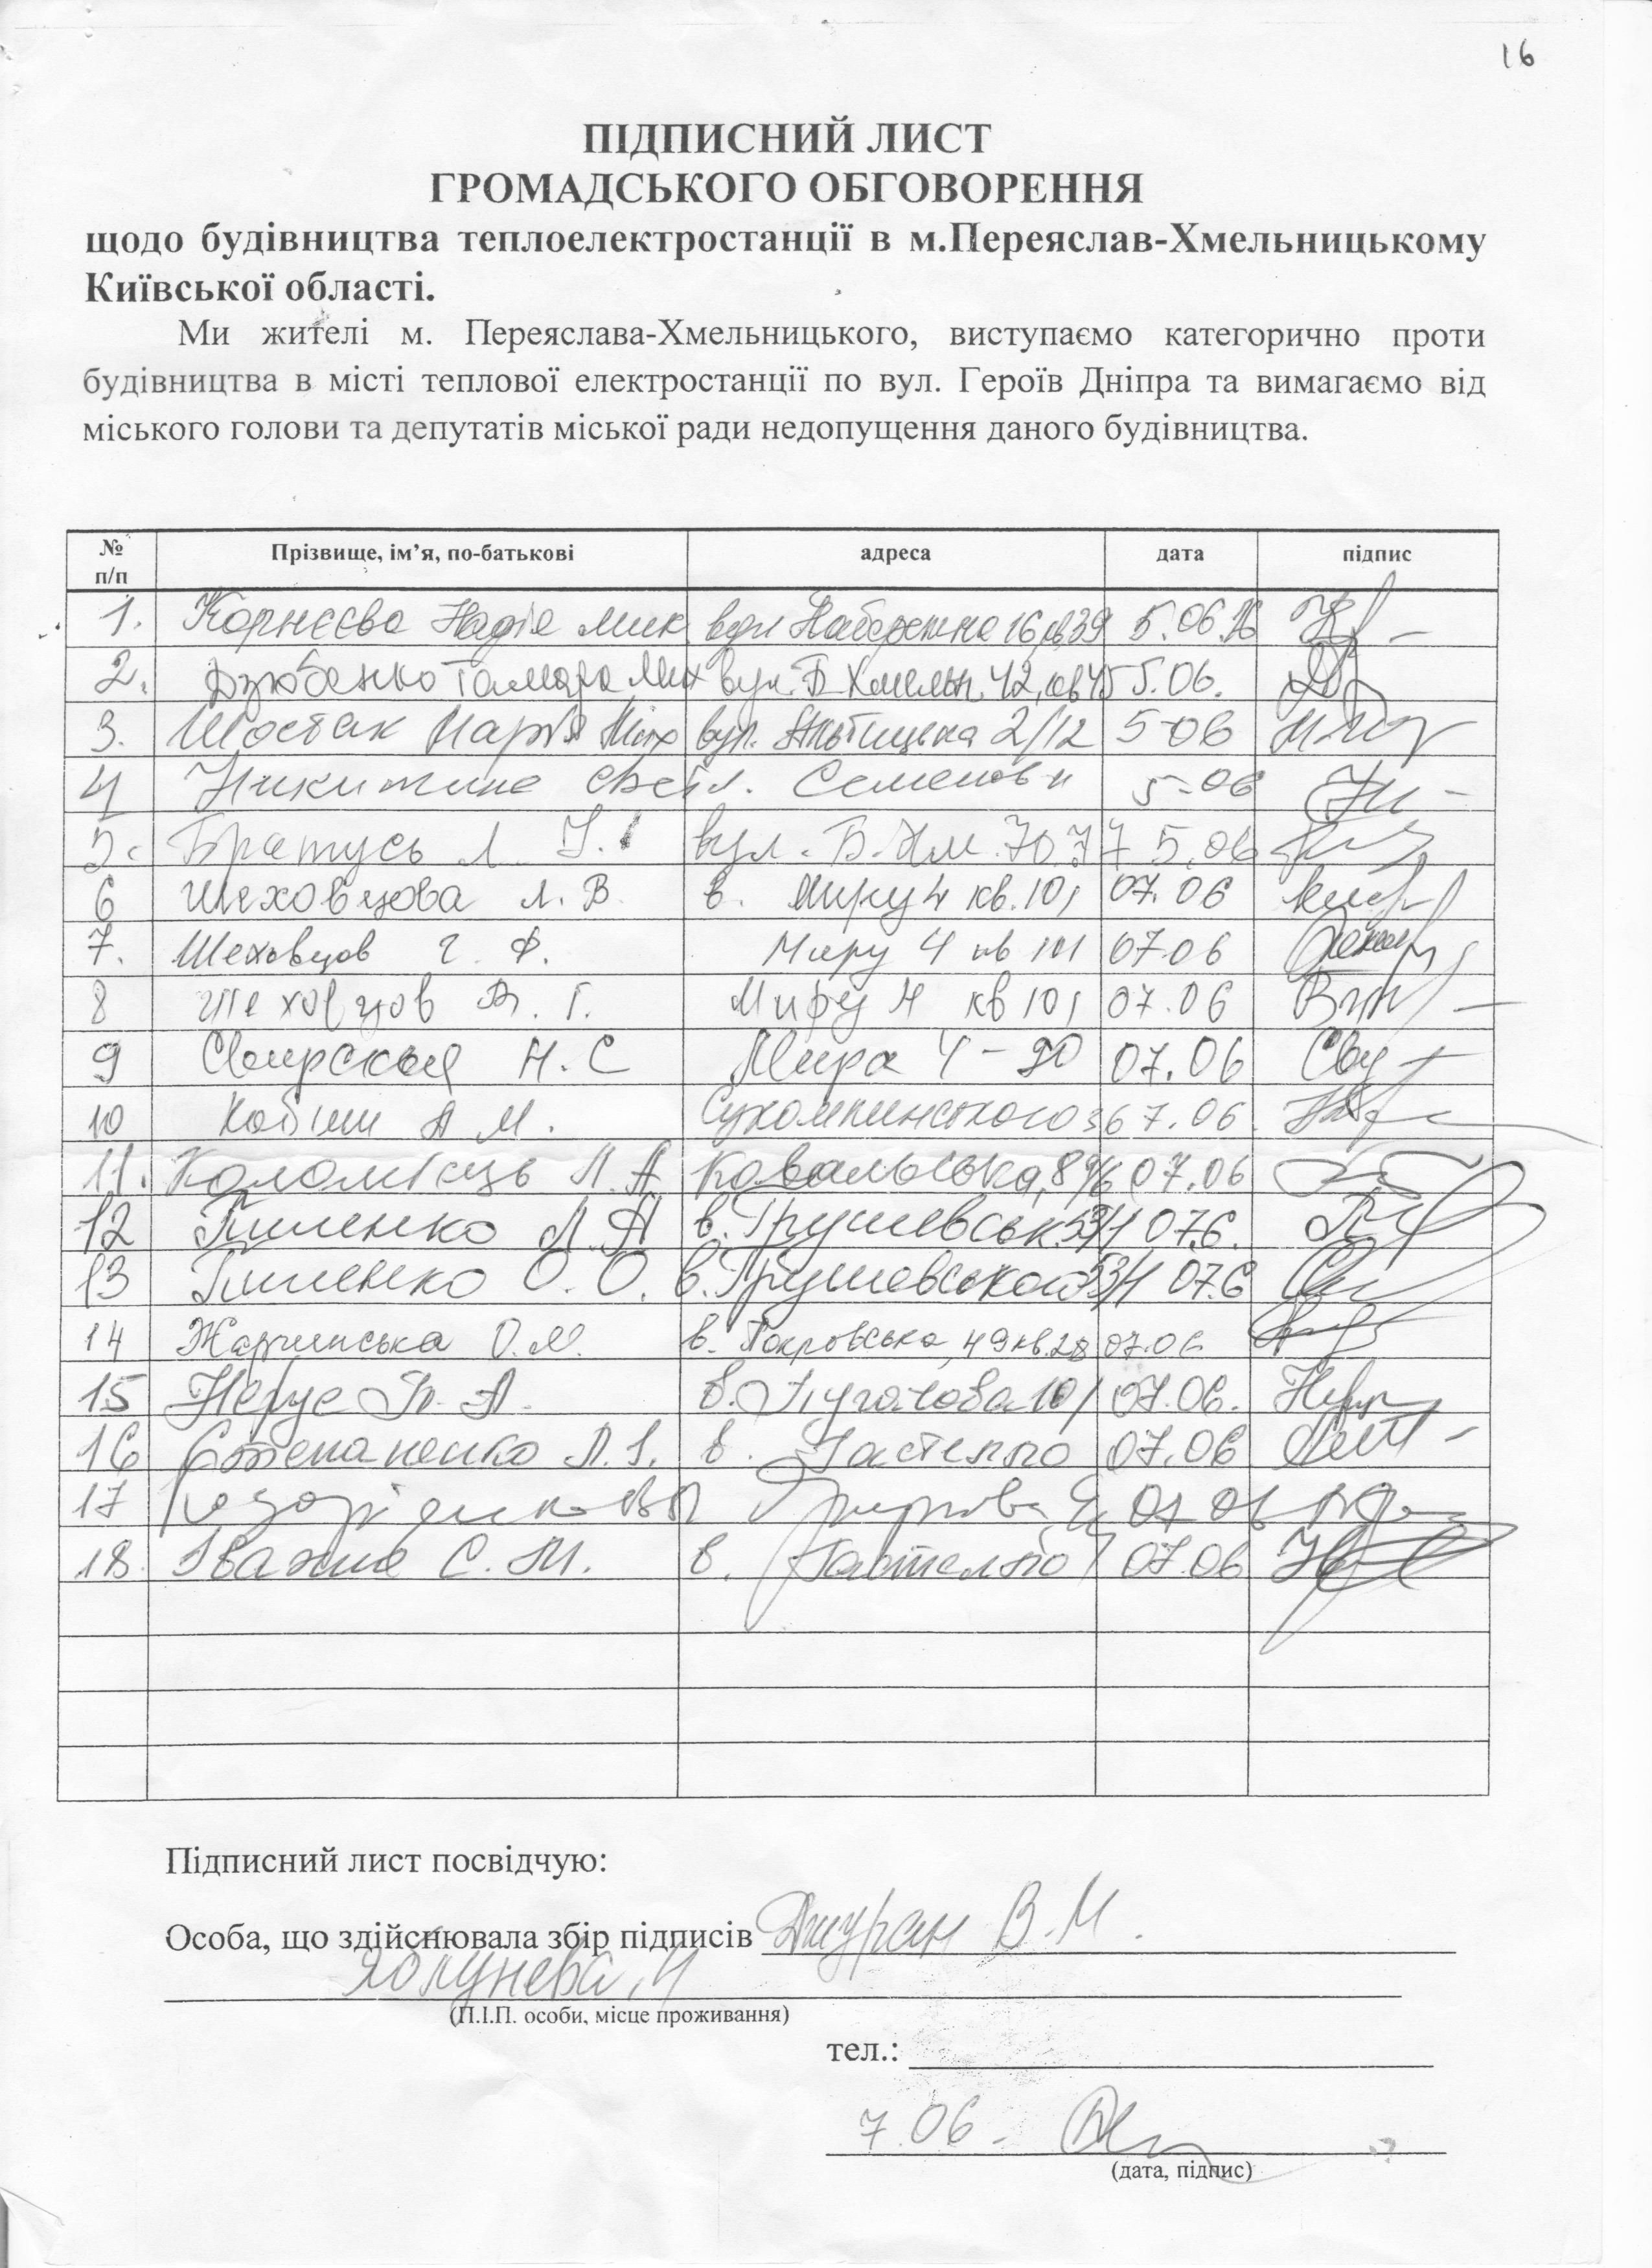 16
ПІДПИСНИЙ ЛИСТ
ГРОМАДСЬКОГО ОБГОВОРЕННЯ
щодо будівництва теплоелектростанції в м.Переяслав-Хмельницькому
Київської області.
Ми жителі м. Переяслава-Хмельницького, виступаємо категорично проти
будівництва в місті теплової електростанції по вул. Героїв Дніпра та вимагаємо від
міського голови та депутатів міської ради недопущення даного будівництва.
№ п/п Прізвище, ім’я, по-батькові адреса дата підпис
1. Корнєєва Надія Мик вул Набережна 16 кв39 5.06.16
2. Дзюбенко Тамара Мих вул. Б Хмельн. 42, кв 45 5.06.
3. Шостак Марія Мих вул. Альтицька 2/12 5-06
4 Никитина Светл. Семеновн 5-06
5. Братусь Л. І. вул. Б. Хм. 70.77 5.06
6 Шеховцова Л. В. в. Миру 4 кв. 101 07.06
7. Шеховцов Г. Ф. Миру 4 кв 101 07.06
8 Шеховцов В. Г. Миру 4 кв 101 07.06
9 Свирская Н. С Мира 4-90 07.06
10 А М. Сухомлинського 36 7.06.
11. Коломієць Л. А Ковальська, 8 07.06
12 Пиленко Л. А в. Грушевськ. 53/1 07.6.
13 Пиленко О. О. в. Грушевського 53/1 07.6
14 О. М. в. Покровська, 49 кв. 28 07.06
15 Негус Т. А. в. Пугачова 10/ 07.06.
16 Степаненко Л. І. в. Гастелло 07.06
17 07 06
18. Іважко С. М. в. Гастелло 7 07.06
Підписний лист посвідчую:
Особа, що здійснювала збір підписів Джуран В. М.
Яблунева, 4
(П.І.П. особи, місце проживання)
тел.:
7.06.
(дата, підпис)